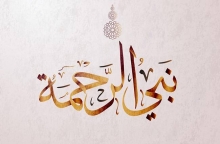 نبي الرحمة